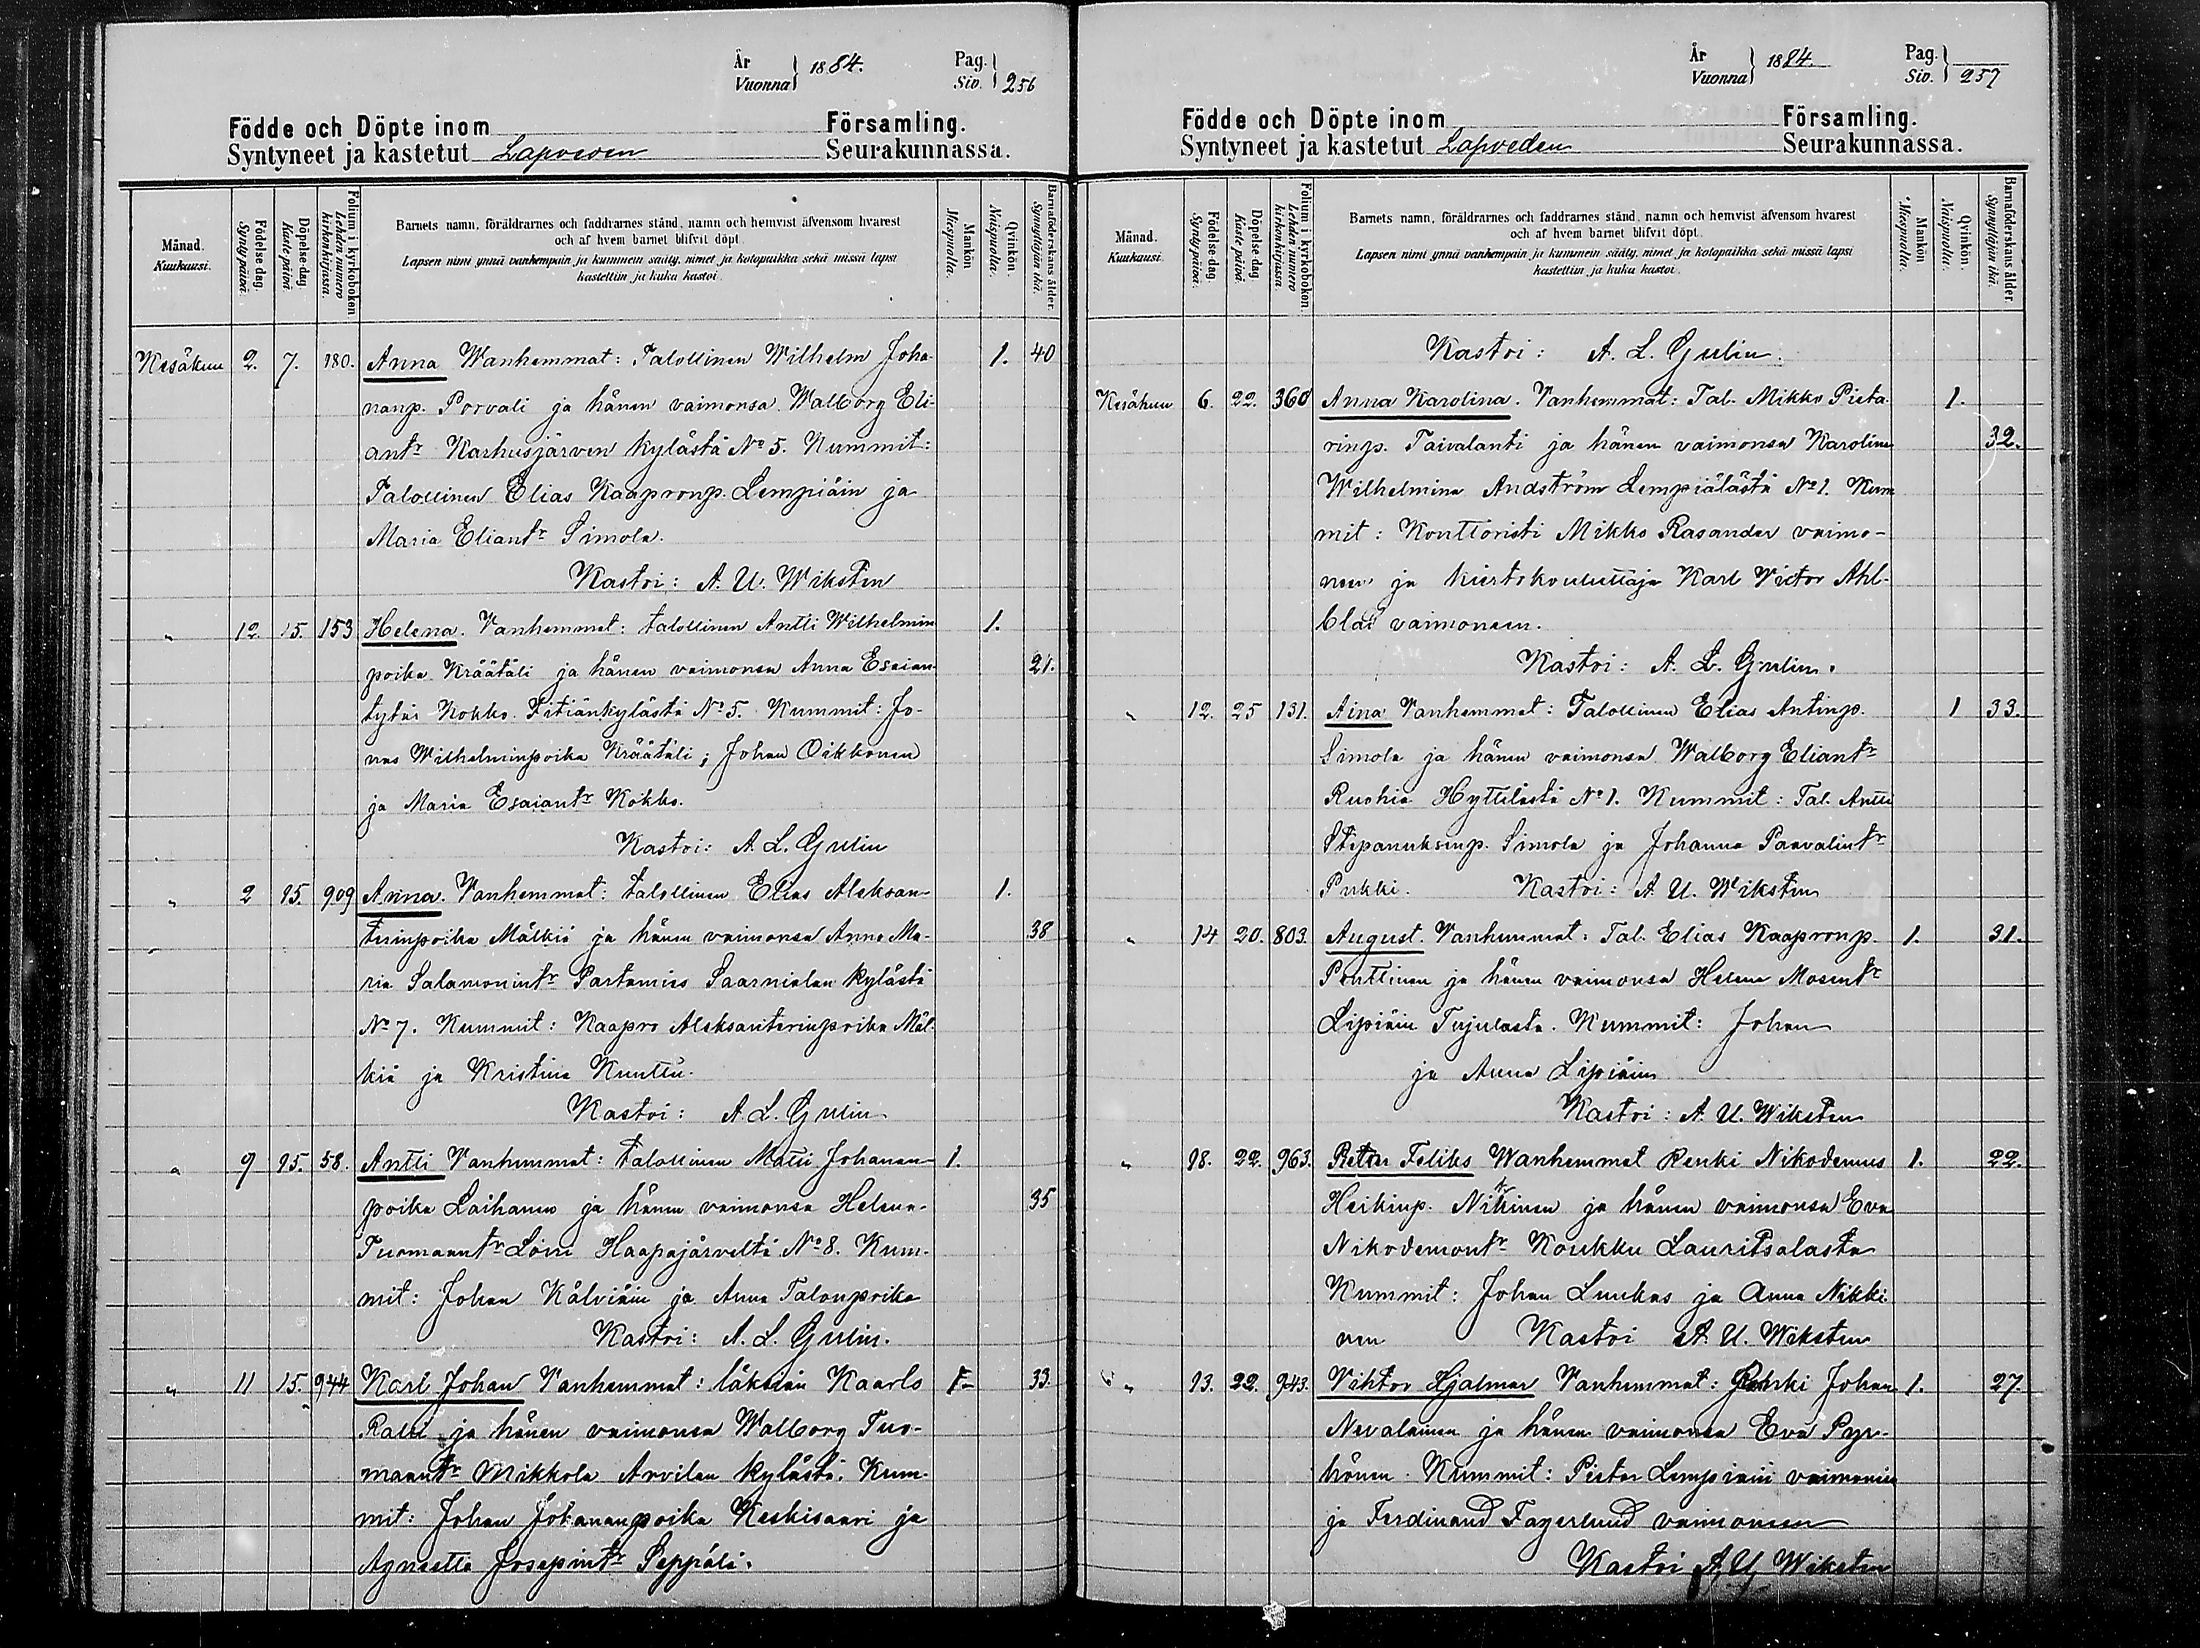 År
Vuonna 1884.
Pag.
Siv. 256
Födde och Döpte inom Församling.
Syntyneet ja kastetut Lapveden Seurakunnassa.
Månad.
Kuukausi.
Födelse dag.
Synty päivä.
Döpelse dag
Kaste päivä.
Folium i kyrkoboken
Lehden numero
kirkonkirjassa.
Barnets namn, föräldrarnes och faddrarnes stånd, namn och hemvist äfvensom hvarest
och af hvem barnet blifvit döpt.
Lapsen nimi ynnä vanhempain ja kummein sääty, nimet ja kotopaikka sekä missä lapsi
kastettiin ja kuka kastoi.
Mankön
Miespuolia.
Qvinkön.
Naispuolia.
Barnaföderskans ålder.
Synnyttäjän ikä.
Kesäkuu 2. 7. 180. Anna Wanhemmat: Talollinen Wilhelm Joha- 1. 40
nanp. Porvali ja hänen vaimonsa Walborg Eli-
antr Karhusjärven kylästä No 5. Kummit:
Talollinen Elias Kaapronp. Lempiäin ja
Maria Eliantr Simola.
Kastoi: A. U. Wiksten
" 12 15. 153 Helena. Vanhemmat: talollinen Antti Wilhelmin 1.
poika Kräätäli ja hänen vaimonsa Anna Esaian- 21.
tytär Kokko. Titiänkylästä No 5. Kummit: Jo-
nas Wilhelminpoika Kräätäli, Johan Oikkonen
ja Maria Esaiantr Kokko.
Kastoi: A. L. Gulin
" 2 15. 909 Anna. Vanhemmat: talollinen Elias Aleksan- 1.
terinpoika Mälkiä ja hänen vaimonsa Anna Ma- 38
ria Salamonintr Partamies Saarnialan kylästä
No 7. Kummit: Kaapro Aleksanterinpoika Mäl-
kiä ja Kristina Kunttu.
Kastoi: A. L. Gulin
" 9 15. 58. Antti Vanhemmat: talollinen Matti Johanan- 1.
poika Laihanen ja hänen vaimonsa Helena 35
Tuomaantr Löini Haapajärveltä No 8. Kum-
mit: Johan Kälviäin ja Anna Talonpoika
Kastoi: A. L. Gulin.
" 11 15. 944 Karl Johan Vanhemmat: läksiän Kaarlo 1- 33.
Ralli ja hänen vaimonsa Walborg Tuo-
maantr Mikkola Arvilan kylästä. Kum-
mit: Johan Johananpoika Keskisaari ja
Agneetta Josepintr Seppälä.
År
Vuonna 1884.
Pag.
Siv. 257
Födde och Döpte inom Församling.
Syntyneet ja kastetut Lapveden Seurakunnassa.
Månad.
Kuukausi.
Födelse dag.
Synty päivä.
Döpelse dag
Kaste päivä.
Folium i kyrkoboken
Lehden numero
kirkonkirjassa.
Barnets namn, föräldrarnes och faddrarnes stånd, namn och hemvist äfvensom hvarest
och af hvem barnet blifvit döpt.
Lapsen nimi ynnä vanhempain ja kummein sääty, nimet ja kotopaikka sekä missä lapsi
kastettiin ja kuka kastoi.
Mankön
Miespuolia.
Qvinkön.
Naispuolia.
Barnaföderskans ålder.
Synnyttäjän ikä.
Kastoi: A. L. Gulin.
Kesäkuu 6. 22. 360 Anna Karolina. Vanhemmat: Tal. Mikko Pieta- 1.
rinp. Taivalanti ja hänen vaimonsa Karolina 32.
Wilhelmina Andström Lempiälästä No 1. Kum
mit: Konttoristi Mikko Rasander vaimo-
neen ja kiertokouluttaja Karl Victor Ahl-
blad vaimoneen.
Kastoi: A. L. Gulin.
" 12. 25 131. Aina Vanhemmat: Talollinen Elias Antinp. 1 33.
Simola ja hänen vaimonsa Walborg Eliantr
Ruohia Hyttilästä No 1. Kummit: Tal. Antti
Stepanuksenp. Simola ja Johanna Paavalintr
Pukki. Kastoi: A. U. Wiksten
" 14 20. 803. August. Vanhemmat: Tal. Elias Kaapronp. 1. 31.
Penttinen ja hänen vaimonsa Helena Mosentr
Lipiäin Tujulasta. Kummit: Johan
ja Anna Lipiäin
Kastoi: A. U. Wiksten
" 18. 22. 963. Petter Feliks Wanhemmat Renki Nikodemus 1. 22.
Heikinp. Nikkinen ja hänen vaimonsa Eva
Nikodemontr Koukku Lauritsalasta
Kummit: Johan Luukas ja Anna Nikki-
nen Kastoi A. U. Wiksten
" 13. 22. 943. Viktor Hjalmar Vanhemmat: Renki Johan 1. 27.
Nevalainen ja hänen vaimonsa Eva Pyr-
hönen. Kummit: Pietar Lempiäin vaimonsa
ja Ferdinand Fagerlund vaimoneen
Kastoi A. U. Wiksten